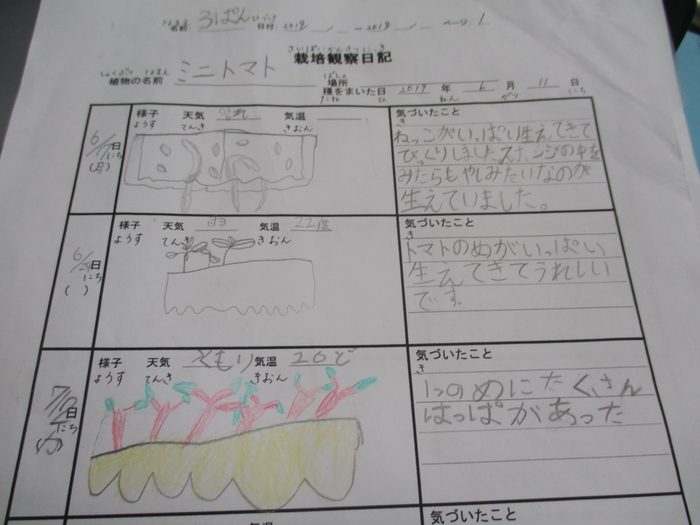 なまえ 名前: ろぱん ひづけ 日付: 2019 / ~2019 / ページ: 1
さいばいかんさつにっき
栽培観察日記
しょくぶつ なまえ
植物の名前 ミニトマト
ばしょ
場所
種をまいた日 2019 年 6 月 11 日
たね ひ ねん がつ にち
様子 天気 晴れ 気温
ようす てんき きおん
6/17日
にち
(月)
気づいたこと
き
ねっこがいっぱい生えてきて
びっくりしました。スポンジの中を
みたらもやしみたいなのが
生えていました。
様子 天気 雨 気温 22度
ようす てんき きおん
6/日
にち
( )
気づいたこと
き
トマトのめがいっぱい
生えてきてうれしい
です。
様子 天気 くもり 気温 26ど
ようす てんき きおん
7/日
にち
気づいたこと
き
1つのめにたくさん
はっぱがあった
気温
気づいたこと